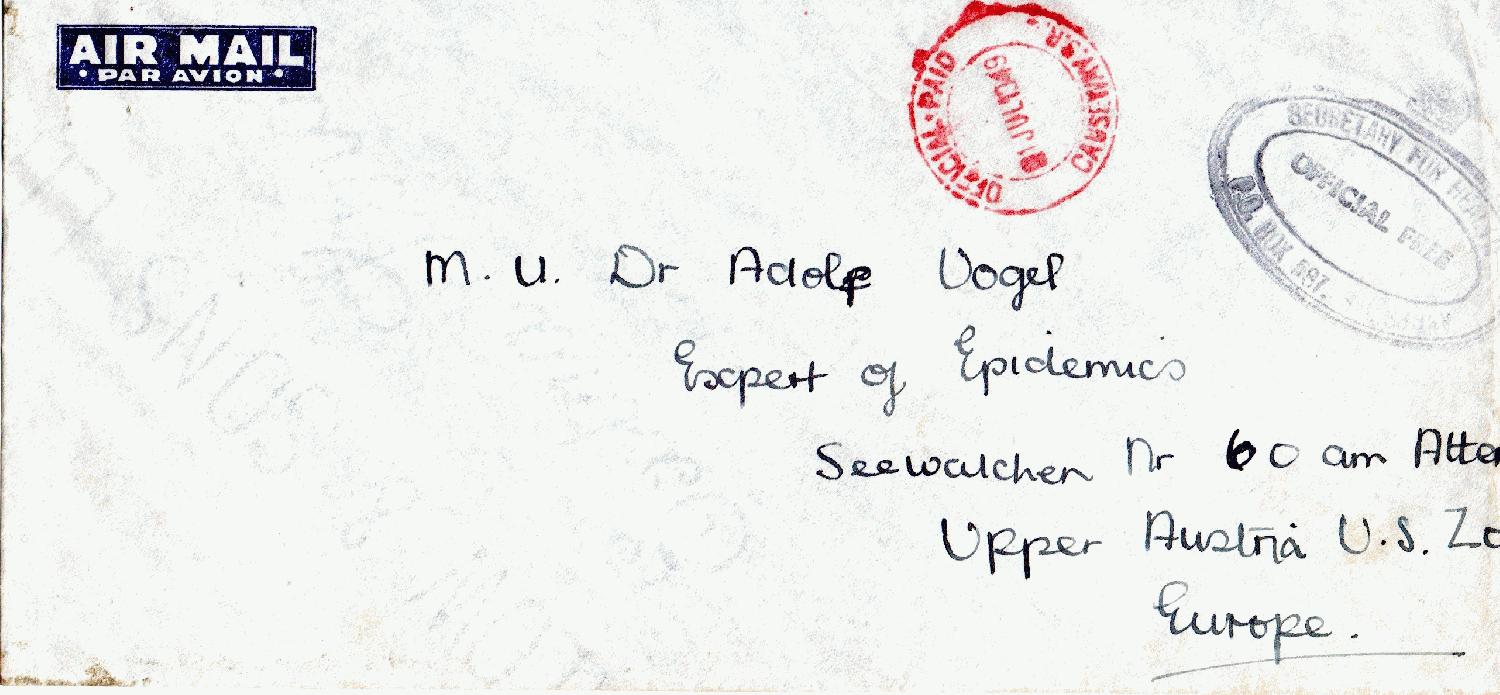 AIR MAIL
• PAR AVION •
OFFICIAL • PAID
CAUSEWAY. S.R.
1 JUL
SECRETARY FOR
OFFICIAL FREE
P.O. BOX 597.
M. U. Dr Adolf Vogel
Expert of Epidemics
Seewalchen Nr 60 am Atter
Upper Austria U.S. Zo
Europe.